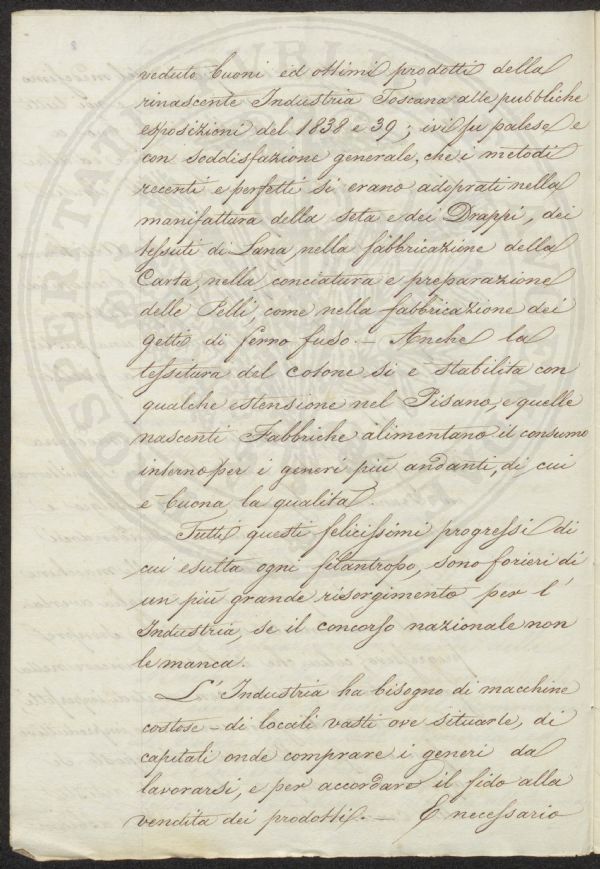 veduto buoni ed ottimi prodotti della
rinascente Industria Toscana alle pubbliche
esposizioni del 1838 e 39; ivi fu palese e
con soddisfazione generale, che i metodi
recenti e perfetti si erano adoprati nella
manifattura della seta e dei Drappi, dei
tessuti di Lana, nella fabbricazione della
Carta, nella conciatura e preparazione
delle Pelli, come nella fabbricazione dei
getti di ferro fuso. — Anche la
tessitura del cotone si è stabilita con
qualche estensione nel Pisano, e quelle
nascenti Fabbriche alimentano il consumo
interno per i generi più andanti, di cui
è buona la qualità.
Tutti questi felicissimi progressi di
cui esulta ogni filantropo, sono forieri di
un più grande risorgimento per l'
Industria, se il concorso nazionale non
le manca.
L'Industria ha bisogno di macchine
costose — di locali vasti ove situarle, di
capitali onde comprare i generi da
lavorarsi, e per accordare il fido alla
vendita dei prodotti. — È necessario